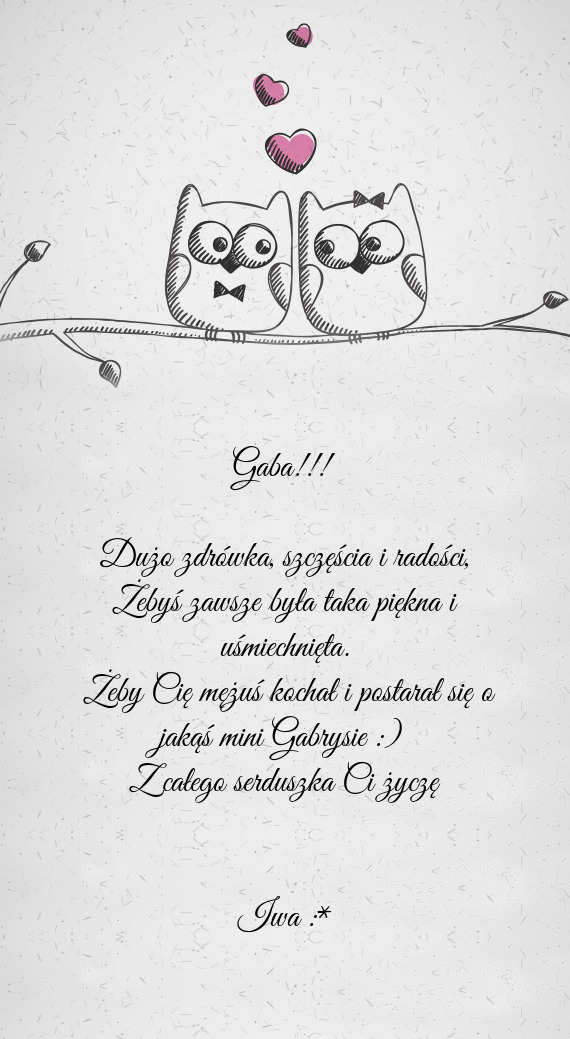 Gaba!!!
Dużo zdrówka, szczęścia i radości,
Żebyś zawsze była taka piękna i
uśmiechnięta.
Żeby Cię mężuś kochał i postarał się o
jakąś mini Gabrysie :)
Zcałego serduszka Ci życzę
Iwa :*